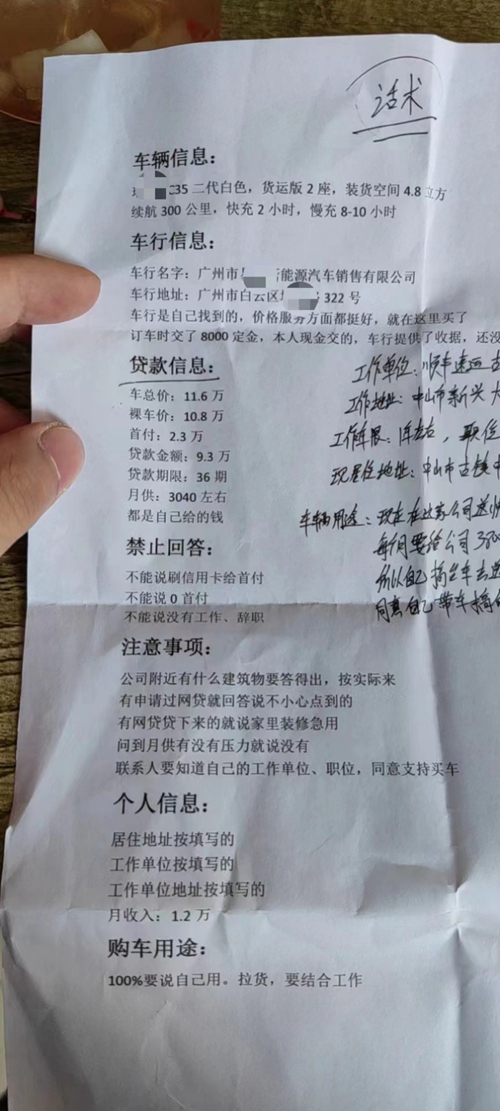 话术
车辆信息：
35 二代白色，货运版 2 座，装货空间 4.8 立方
续航 300 公里，快充 2 小时，慢充 8-10 小时
车行信息：
车行名字：广州市 能源汽车销售有限公司
车行地址：广州市白云区 322 号
车行是自己找到的，价格服务方面都挺好，就在这里买了
订车时交了 8000 定金，本人现金交的，车行提供了收据，还没
贷款信息：
工作单位：顺丰速运
车总价：11.6 万
工作地址：中山市新兴大
裸车价：10.8 万
首付：2.3 万
贷款金额：9.3 万
现居住地址：中山市古镇
贷款期限：36 期
月供：3040 左右
车辆用途：现在在这家公司送
都是自己给的钱
每个月要给公司
禁止回答：
所以自己搞台车去
不能说刷信用卡给首付
同意自己带车搞
不能说 0 首付
不能说没有工作、辞职
注意事项：
公司附近有什么建筑物要答得出，按实际来
有申请过网贷就回答说不小心点到的
有网贷贷下来的就说家里装修急用
问到月供有没有压力就说没有
联系人要知道自己的工作单位、职位，同意支持买车
个人信息：
居住地址按填写的
工作单位按填写的
工作单位地址按填写的
月收入：1.2 万
购车用途：
100%要说自己用。拉货，要结合工作